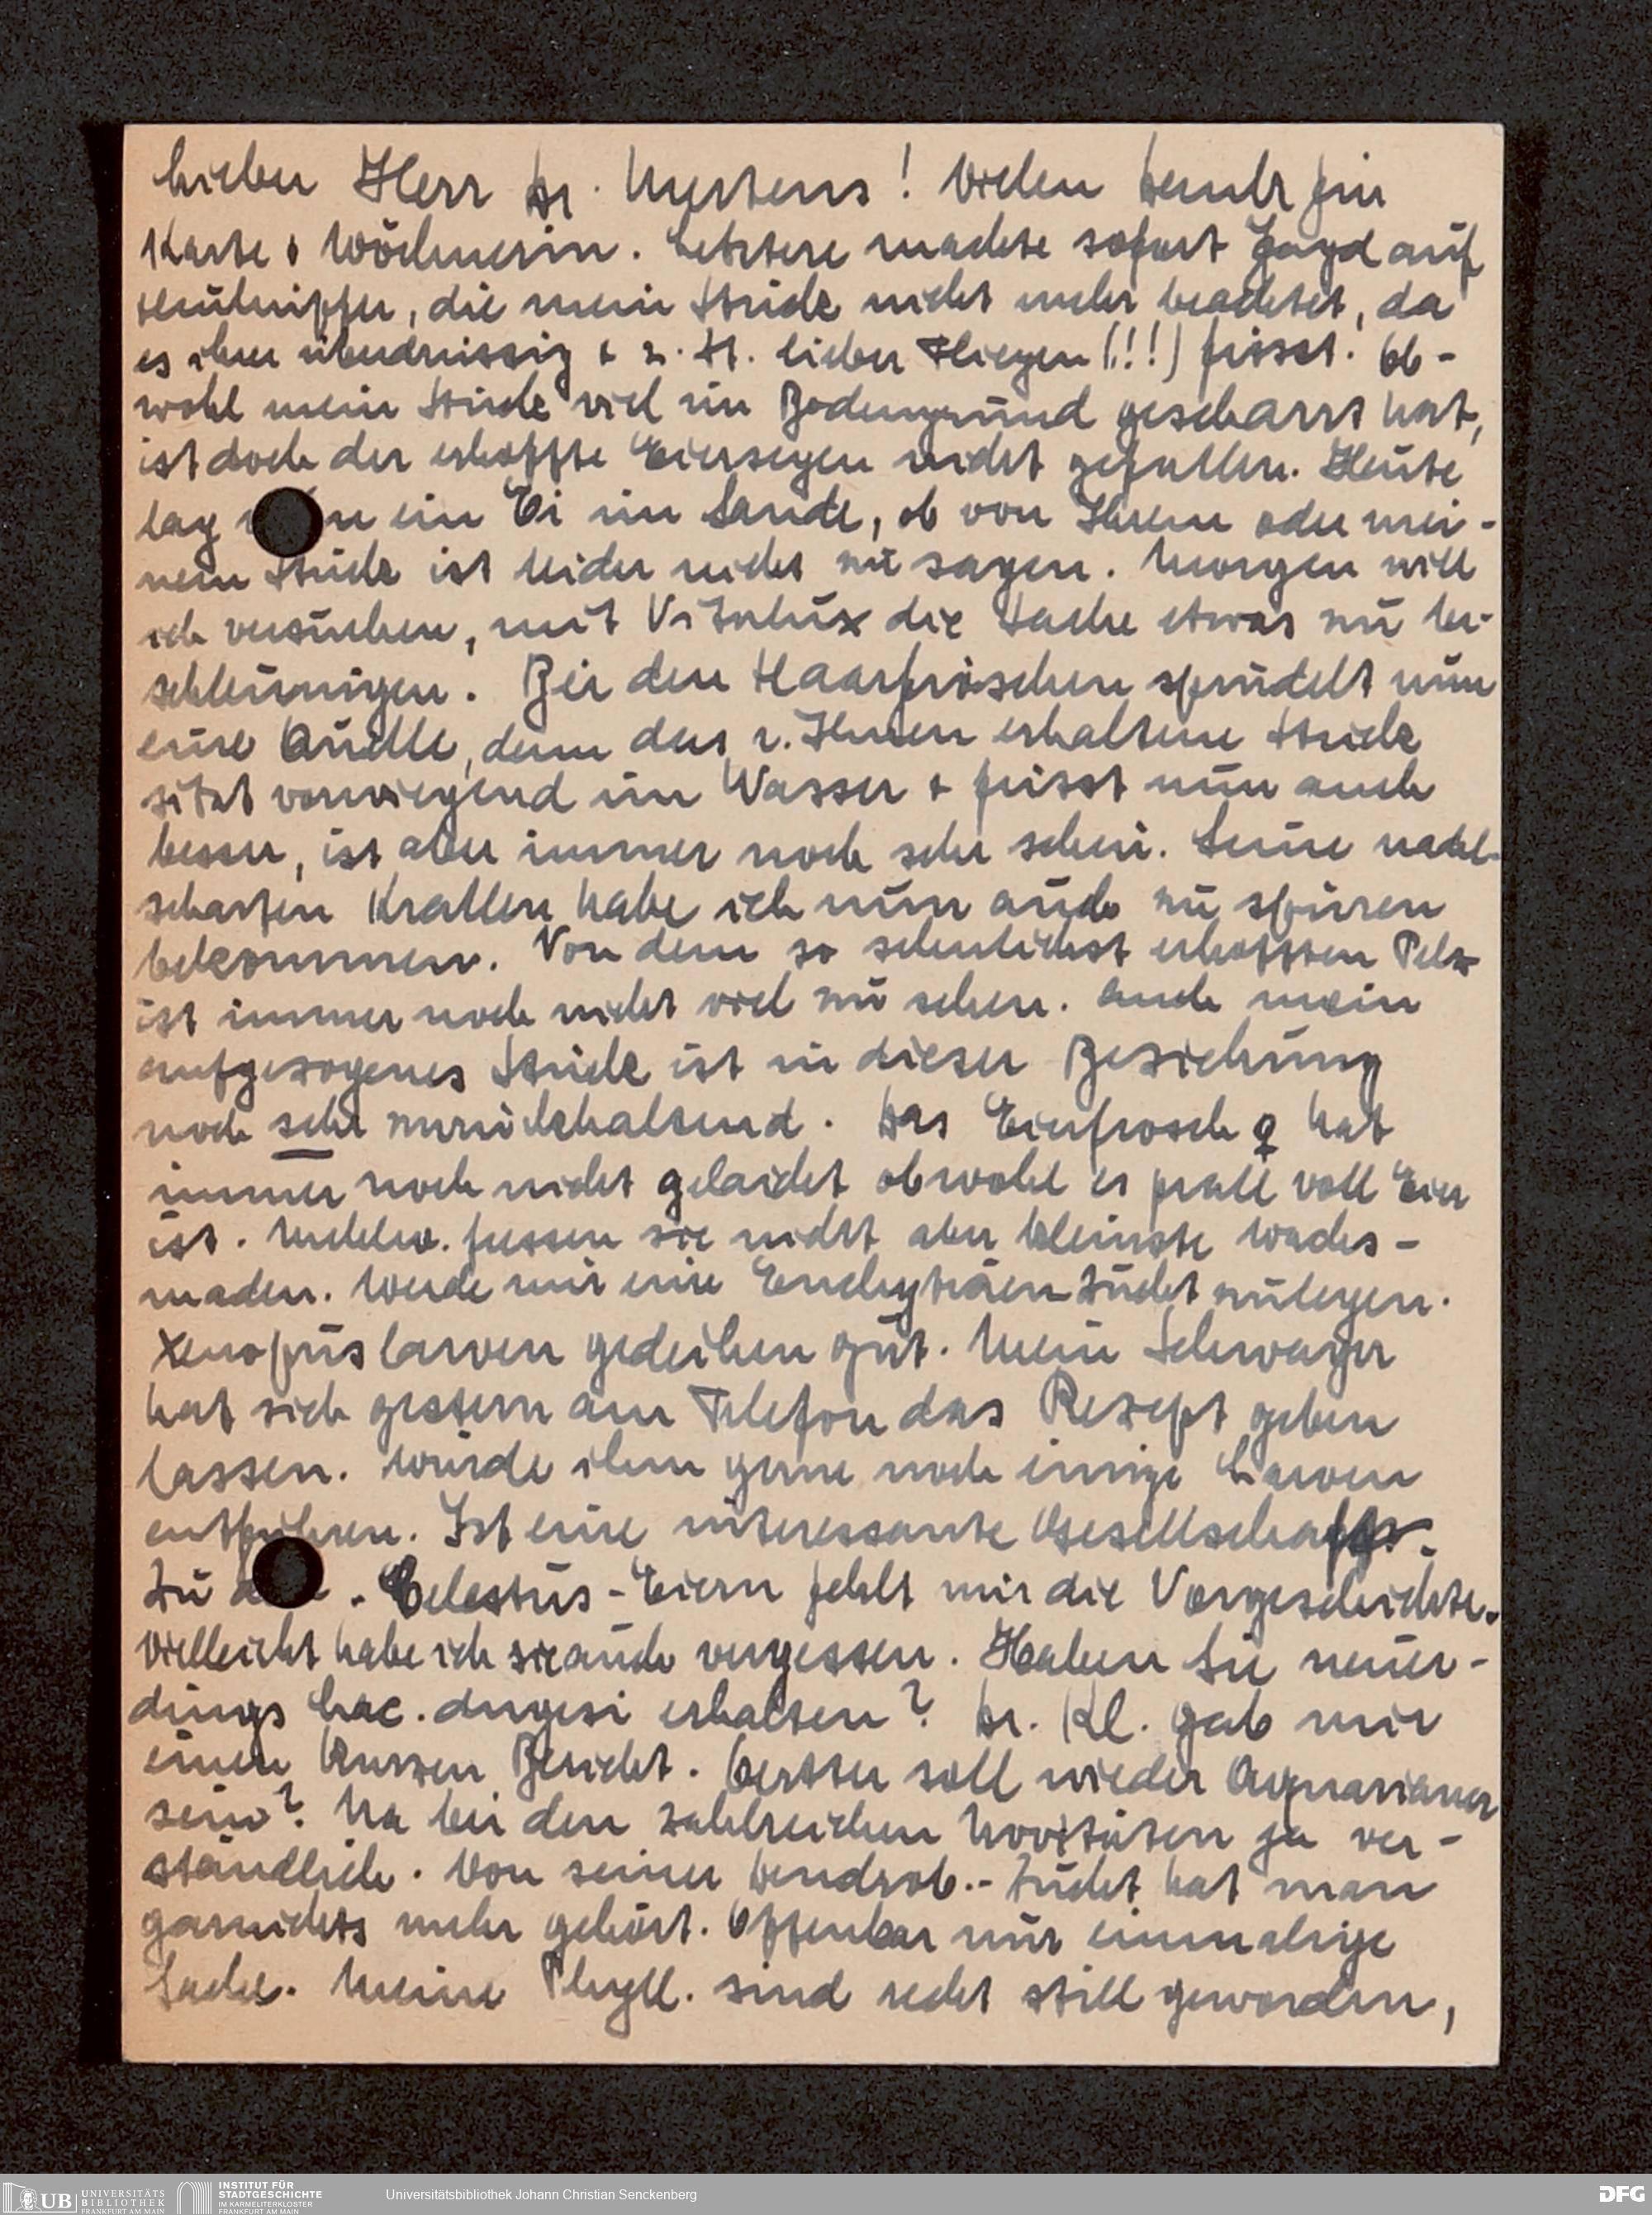 Lieber Herr Dr. Mertens! Vielen Dank für
Karte & Wöchnerin. Letztere machte sofort Jagd auf
die mein Stück nicht mehr beachtet, da
es ihrer überdrüssig & z. Zt. lieber Fliegen (!!!) frisst. Ob-
wohl mein Stück viel im Bodengrund gescharrt hat,
ist doch der erhoffte Eiersegen nicht gefallen. Heute
lag ein Ei im Sande, ob von Ihrem oder mei-
nem Stück ist leider nicht zu sagen. Morgen will
ich versuchen, mit Vitalux die Sache etwas zu be-
schleunigen. Bei den Haarfröschen sprudelt nun
eine Quelle, denn das v. Ihnen erhaltene Stück
sitzt vorwiegend im Wasser & frisst nun auch
besser, ist aber immer noch sehr scheu. Seine nadel-
scharfen Krallen habe ich nun auch zu spüren
bekommen. Von dem so sehnlichst erhofften Pelz
ist immer noch nicht viel zu sehen. Auch mein
aufgezogenes Stück ist in dieser Beziehung
noch sehr zurückhaltend. Das Eierfrosch ♀ hat
immer noch nicht gelaicht obwohl es prall voll Eier
ist. Mehlw. fressen sie nicht aber kleinste Wachs-
maden. Werde mir eine Enchyträen-Zucht zulegen.
Xenopuslarven gedeihen gut. Mein Schwager
hat sich gestern am Telefon das Rezept geben
lassen. Würde ihm gerne noch einige Larven
entführen. Ist eine interessante Gesellschaft.
Zu Celestus-Eiern fehlt mir die Vorgeschichte.
Vielleicht habe ich sie auch vergessen. Haben Sie neuer-
dings Lac. dugesi erhalten? Dr. Kl. gab mir
einen kurzen Bericht. soll wieder Aquarianer
sein? Na bei den zahlreichen Novitäten ja ver-
ständlich. Von seiner Dendrob.-Zucht hat man
garnichts mehr gehört. Offenbar nur einmalige
Sache. Meine Phyll. sind recht still geworden,
UB UNIVERSITÄTS
BIBLIOTHEK
FRANKFURT AM MAIN
INSTITUT FÜR
STADTGESCHICHTE
IM KARMELITERKLOSTER
FRANKFURT AM MAIN
Universitätsbibliothek Johann Christian Senckenberg
DFG